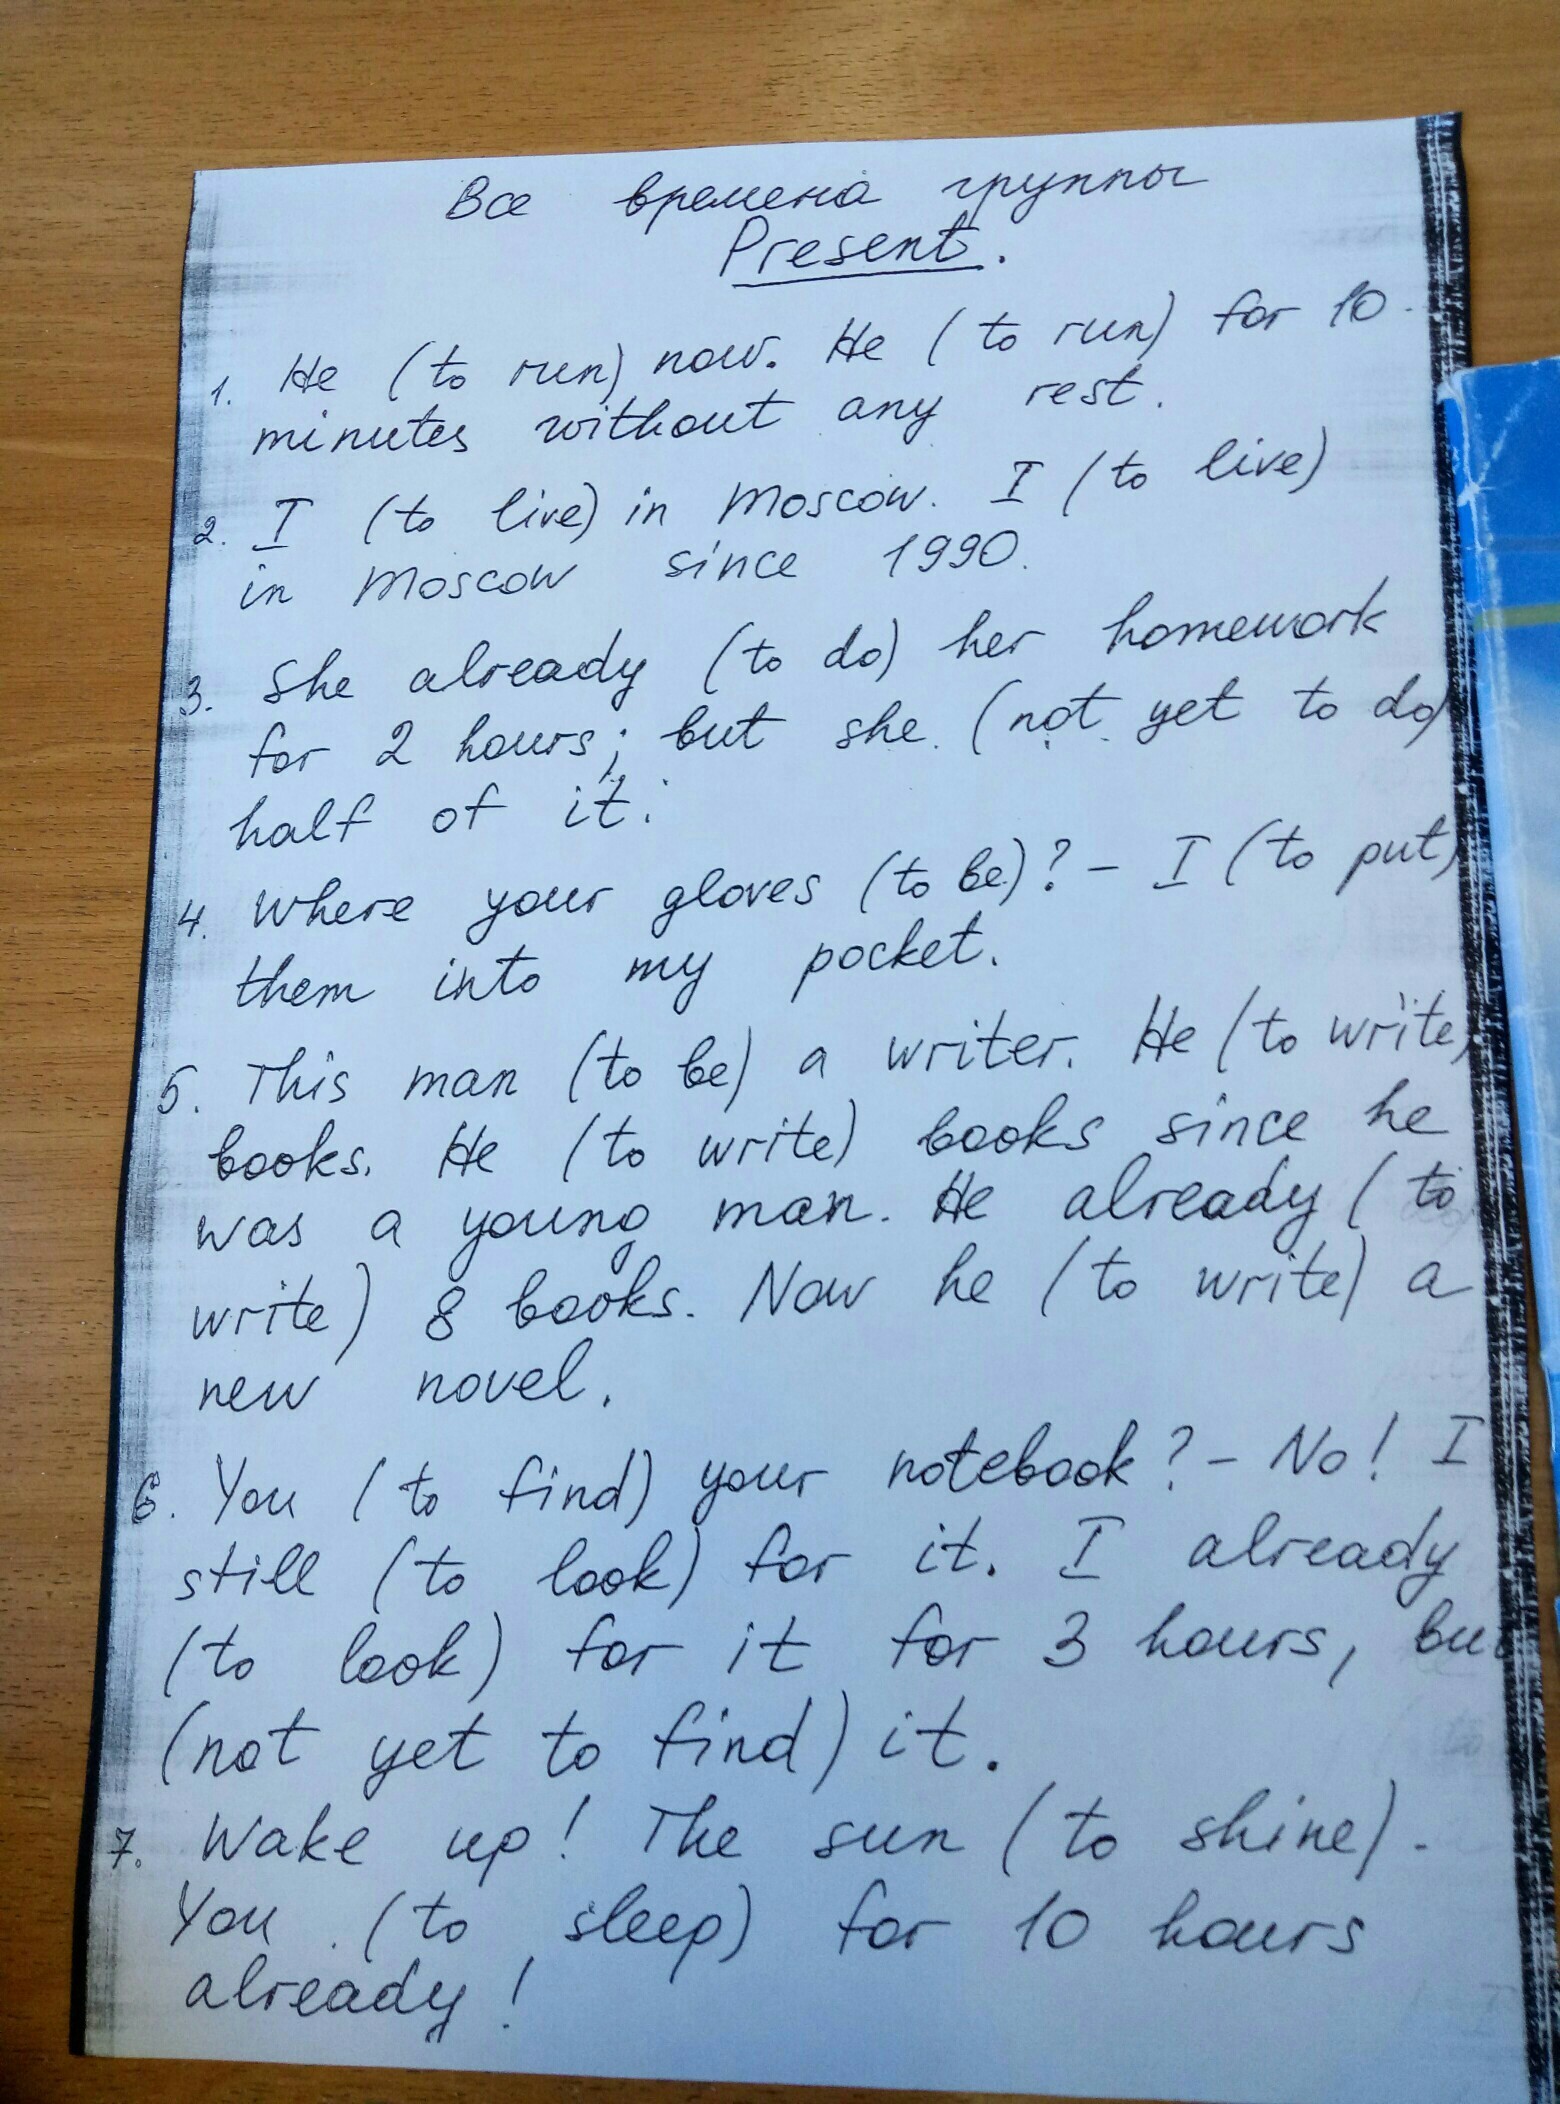 Все времена группы
Present.
1. He (to run) now. He (to run) for 10
minutes without any rest.
2. I (to live) in Moscow. I (to live)
in Moscow since 1990.
3. She already (to do) her homework
for 2 hours; but she (not yet to do)
half of it.
4. Where your gloves (to be)? - I (to put)
them into my pocket.
5. This man (to be) a writer. He (to write)
books. He (to write) books since he
was a young man. He already (to
write) 8 books. Now he (to write) a
new novel.
6. You (to find) your notebook? - No! I
still (to look) for it. I already
(to look) for it for 3 hours, but
(not yet to find) it.
7. Wake up! The sun (to shine).
You (to sleep) for 10 hours
already!